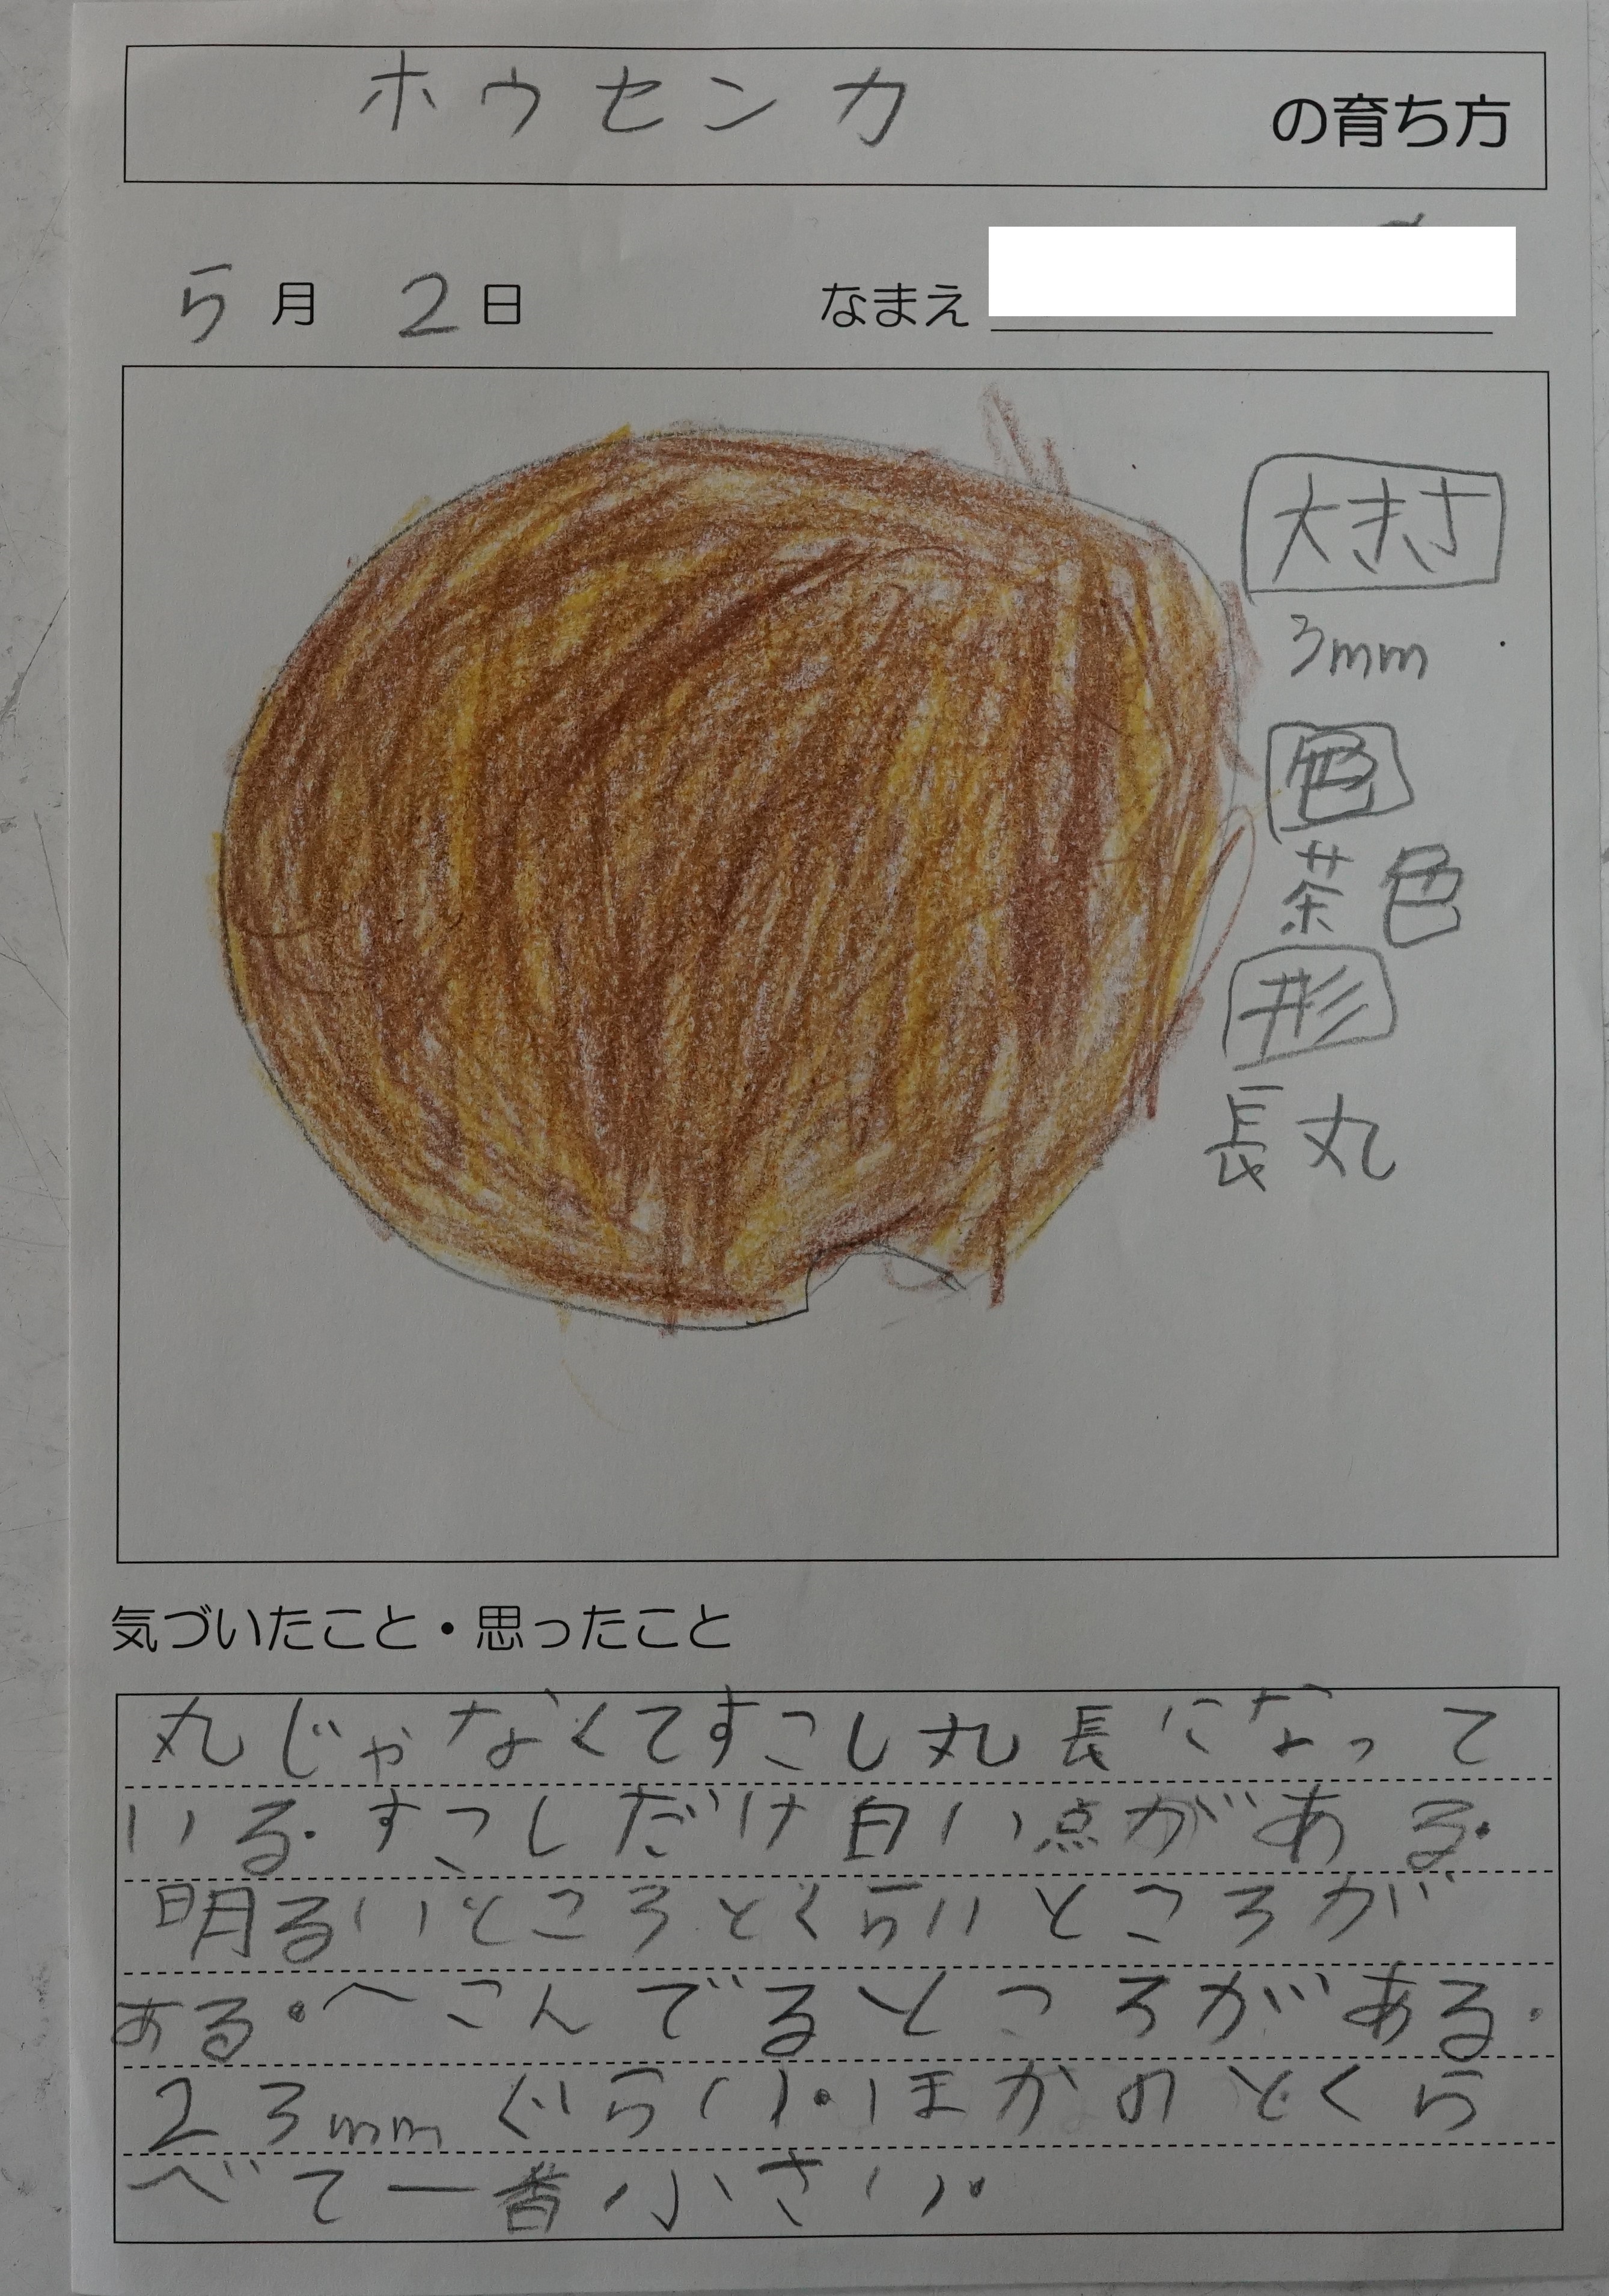 ホウセンカ の育ち方
5月 2日 なまえ
大きさ
3mm
色
茶色
形
長丸
気づいたこと・思ったこと
丸じゃなくてすこし丸長になって
いる.すこしだけ白い点がある.
明るいところとくらいところが
ある.へこんでるところがある.
23mmぐらい.ほかのとくら
べて一番小さい.